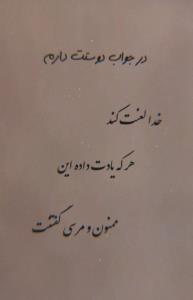 در جواب دوستت دارم
خدا لعنت کند
هر که یادت داده این
ممنون و مرسی گفتنت